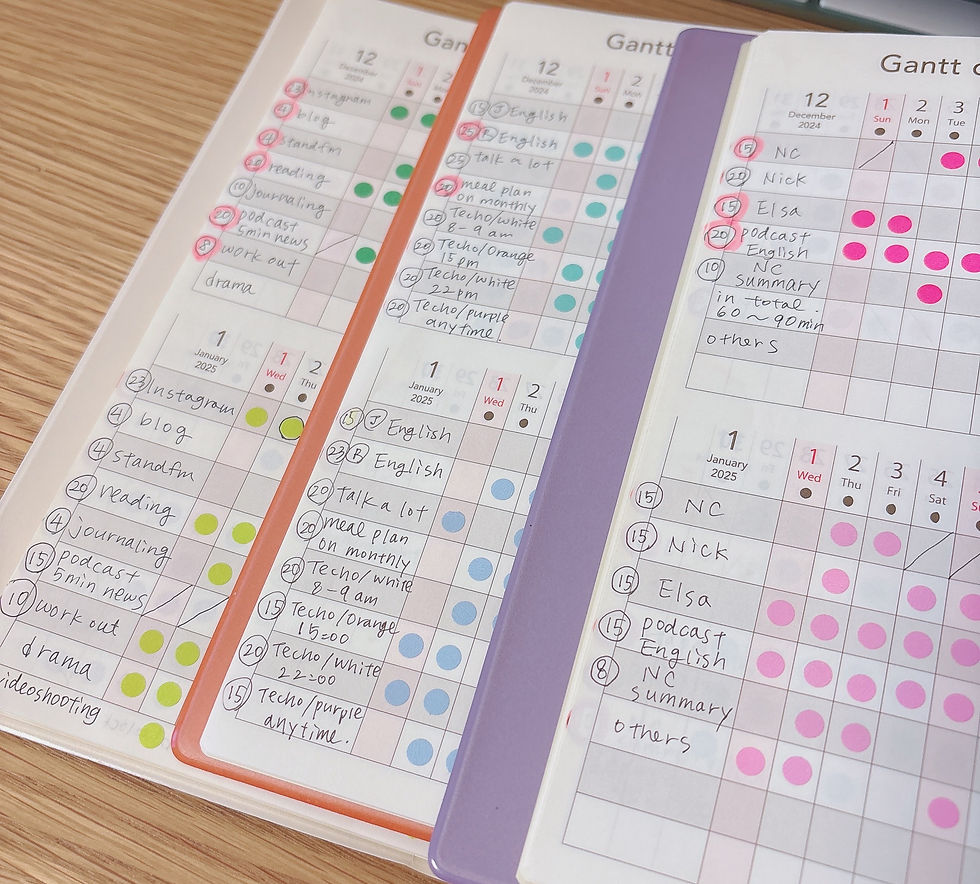 Gan
12
December
2024
1
Sun
2
23 Instagram
4 blog
4 standfm
20 reading
10 journaling
20 podcast
5min news
8 work out
drama
1
January
2025
1
Wed
2
Thu
23 Instagram
4 blog
4 standfm
20 reading
4 journaling
15 podcast
5min news
10 work out
drama
videoshooting
Gantt
12
December
2024
1
Sun
2
Mon
15 J English
25 R English
25 talk a lot
20 meal plan
on monthly
20 Techo/white
8-9 am
20 Techo/Orange
15pm
20 Techo/white
22pm
20 Techo/purple
anytime.
1
January
2025
1
Wed
2
Thu
15 J English
23 R English
20 talk a lot
20 meal plan
on monthly
20 Techo/white
8-9am
15 Techo/Orange
15:00
20 Techo/white
22:00
15 Techo/purple
anytime.
Gantt c
12
December
2024
1
Sun
2
Mon
3
Tue
15 NC
20 Nick
15 Elsa
20 podcast
English
10 NC
summary
in total.
60~90min
others
1
January
2025
1
Wed
2
Thu
3
Fri
4
Sat
15 NC
15 Nick
15 Elsa
15 podcast
English
8 NC
summary
others